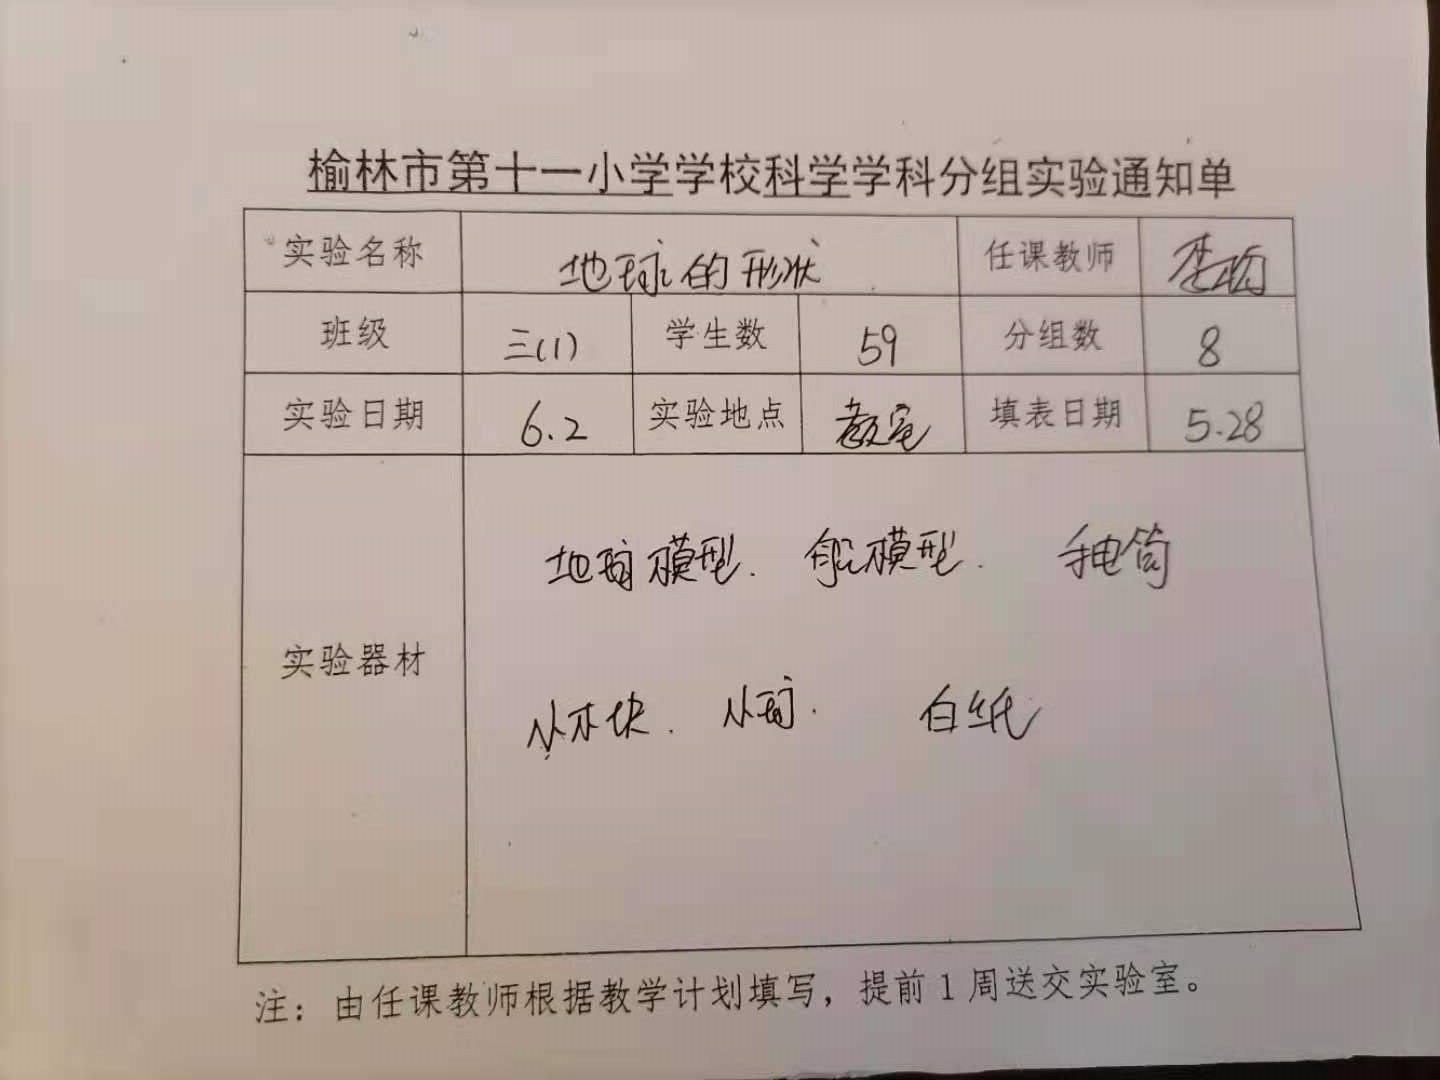 榆林市第十一小学学校科学学科分组实验通知单
实验名称 地球的形状 任课教师
班级 三(1) 学生数 59 分组数 8
实验日期 6.2 实验地点 教室 填表日期 5.28
地球模型. 船模型. 手电筒
实验器材
小木块. 小球. 白纸
注：由任课教师根据教学计划填写，提前1周送交实验室。